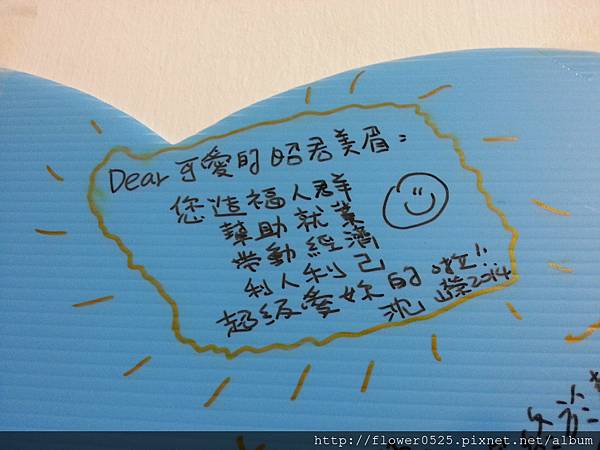 Dear 可愛的昭君美眉：
您造福人群
幫助就業
帶動經濟
利人利己
超級愛妳的啦!!
沈 榮2014
http://flower0525.pixnet.net/album